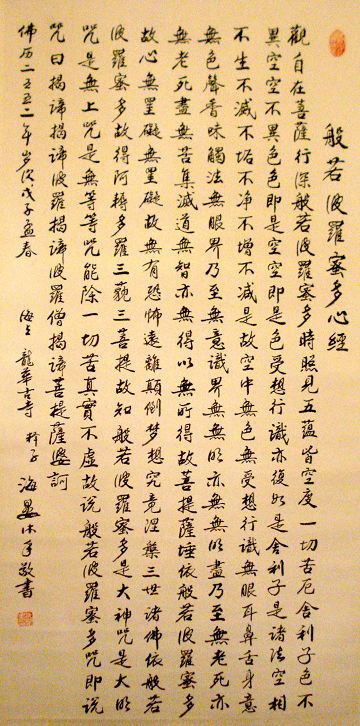 般若波羅蜜多心經
觀自在菩薩行深般若波羅蜜多時照見五蘊皆空度一切苦厄舍利子色不
異空空不異色色即是空空即是色受想行識亦復如是舍利子是諸法空相
不生不滅不垢不净不增不减是故空中無色無受想行識無眼耳鼻舌身意
無色聲香味觸法無眼界乃至無意識界無無明亦無無明盡乃至無老死亦
無老死盡無苦集滅道無智亦無得以無所得故菩提薩埵依般若波羅蜜多
故心無罣礙無罣礙故無有恐怖遠離顛倒梦想究竟涅槃三世諸佛依般若
波羅蜜多故得阿耨多羅三藐三菩提故知般若波羅蜜多是大神咒是大明
咒是無上咒是無等等咒能除一切苦真實不虛故説般若波羅蜜多咒即説
咒曰揭諦揭諦波羅揭諦波羅僧揭諦菩提薩婆訶
佛历二五五二年岁次戊子孟春 龍華古寺 釋子 海曇沐手敬書